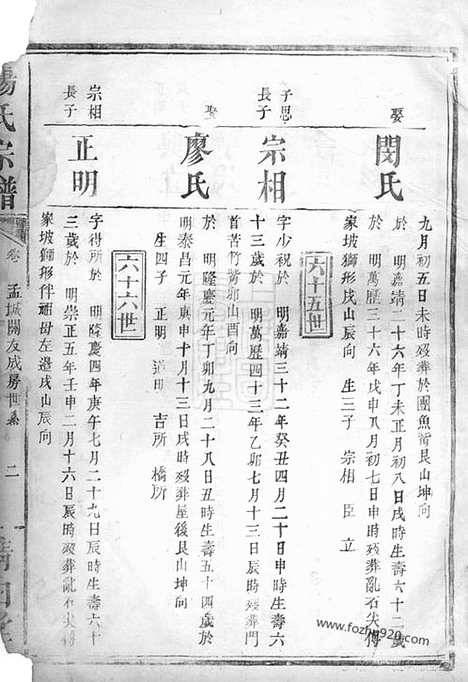 九月初五日未時殁葬於團魚嘴艮山坤向
娶
閔氏
於 明嘉靖二十六年丁未正月初八日戌時生壽六十二歲
於 明萬歷三十六年戊申八月初七日申時殁葬亂石尖傅
家坡獅形戌山辰向 生三子 宗相 臣 立
六十五世
子思
長子
宗相
字少祝於 明嘉靖三十二年癸丑四月二十日申時生壽六
十三歲於 明萬歷四十三年乙卯七月十三日辰時殁葬門
首苦竹嘴卯山酉向
娶
廖氏
於 明隆慶元年丁卯九月二十八日丑時生壽五十四歲於
明泰昌元年庚申十月十三日戌時殁葬屋後艮山坤向
生四子 正明 道明 吉所 橋所
六十六世
宗相
長子
正明
字得所於 明隆慶四年庚午七月二十九日辰時生壽六十
三歲於 明崇正五年壬申二月十六日辰時殁葬亂石尖傅
家坡獅形伴禰母左邊戌山辰向
楊氏宗譜
卷
孟城關友成房世系
二
www.fozhu920.com